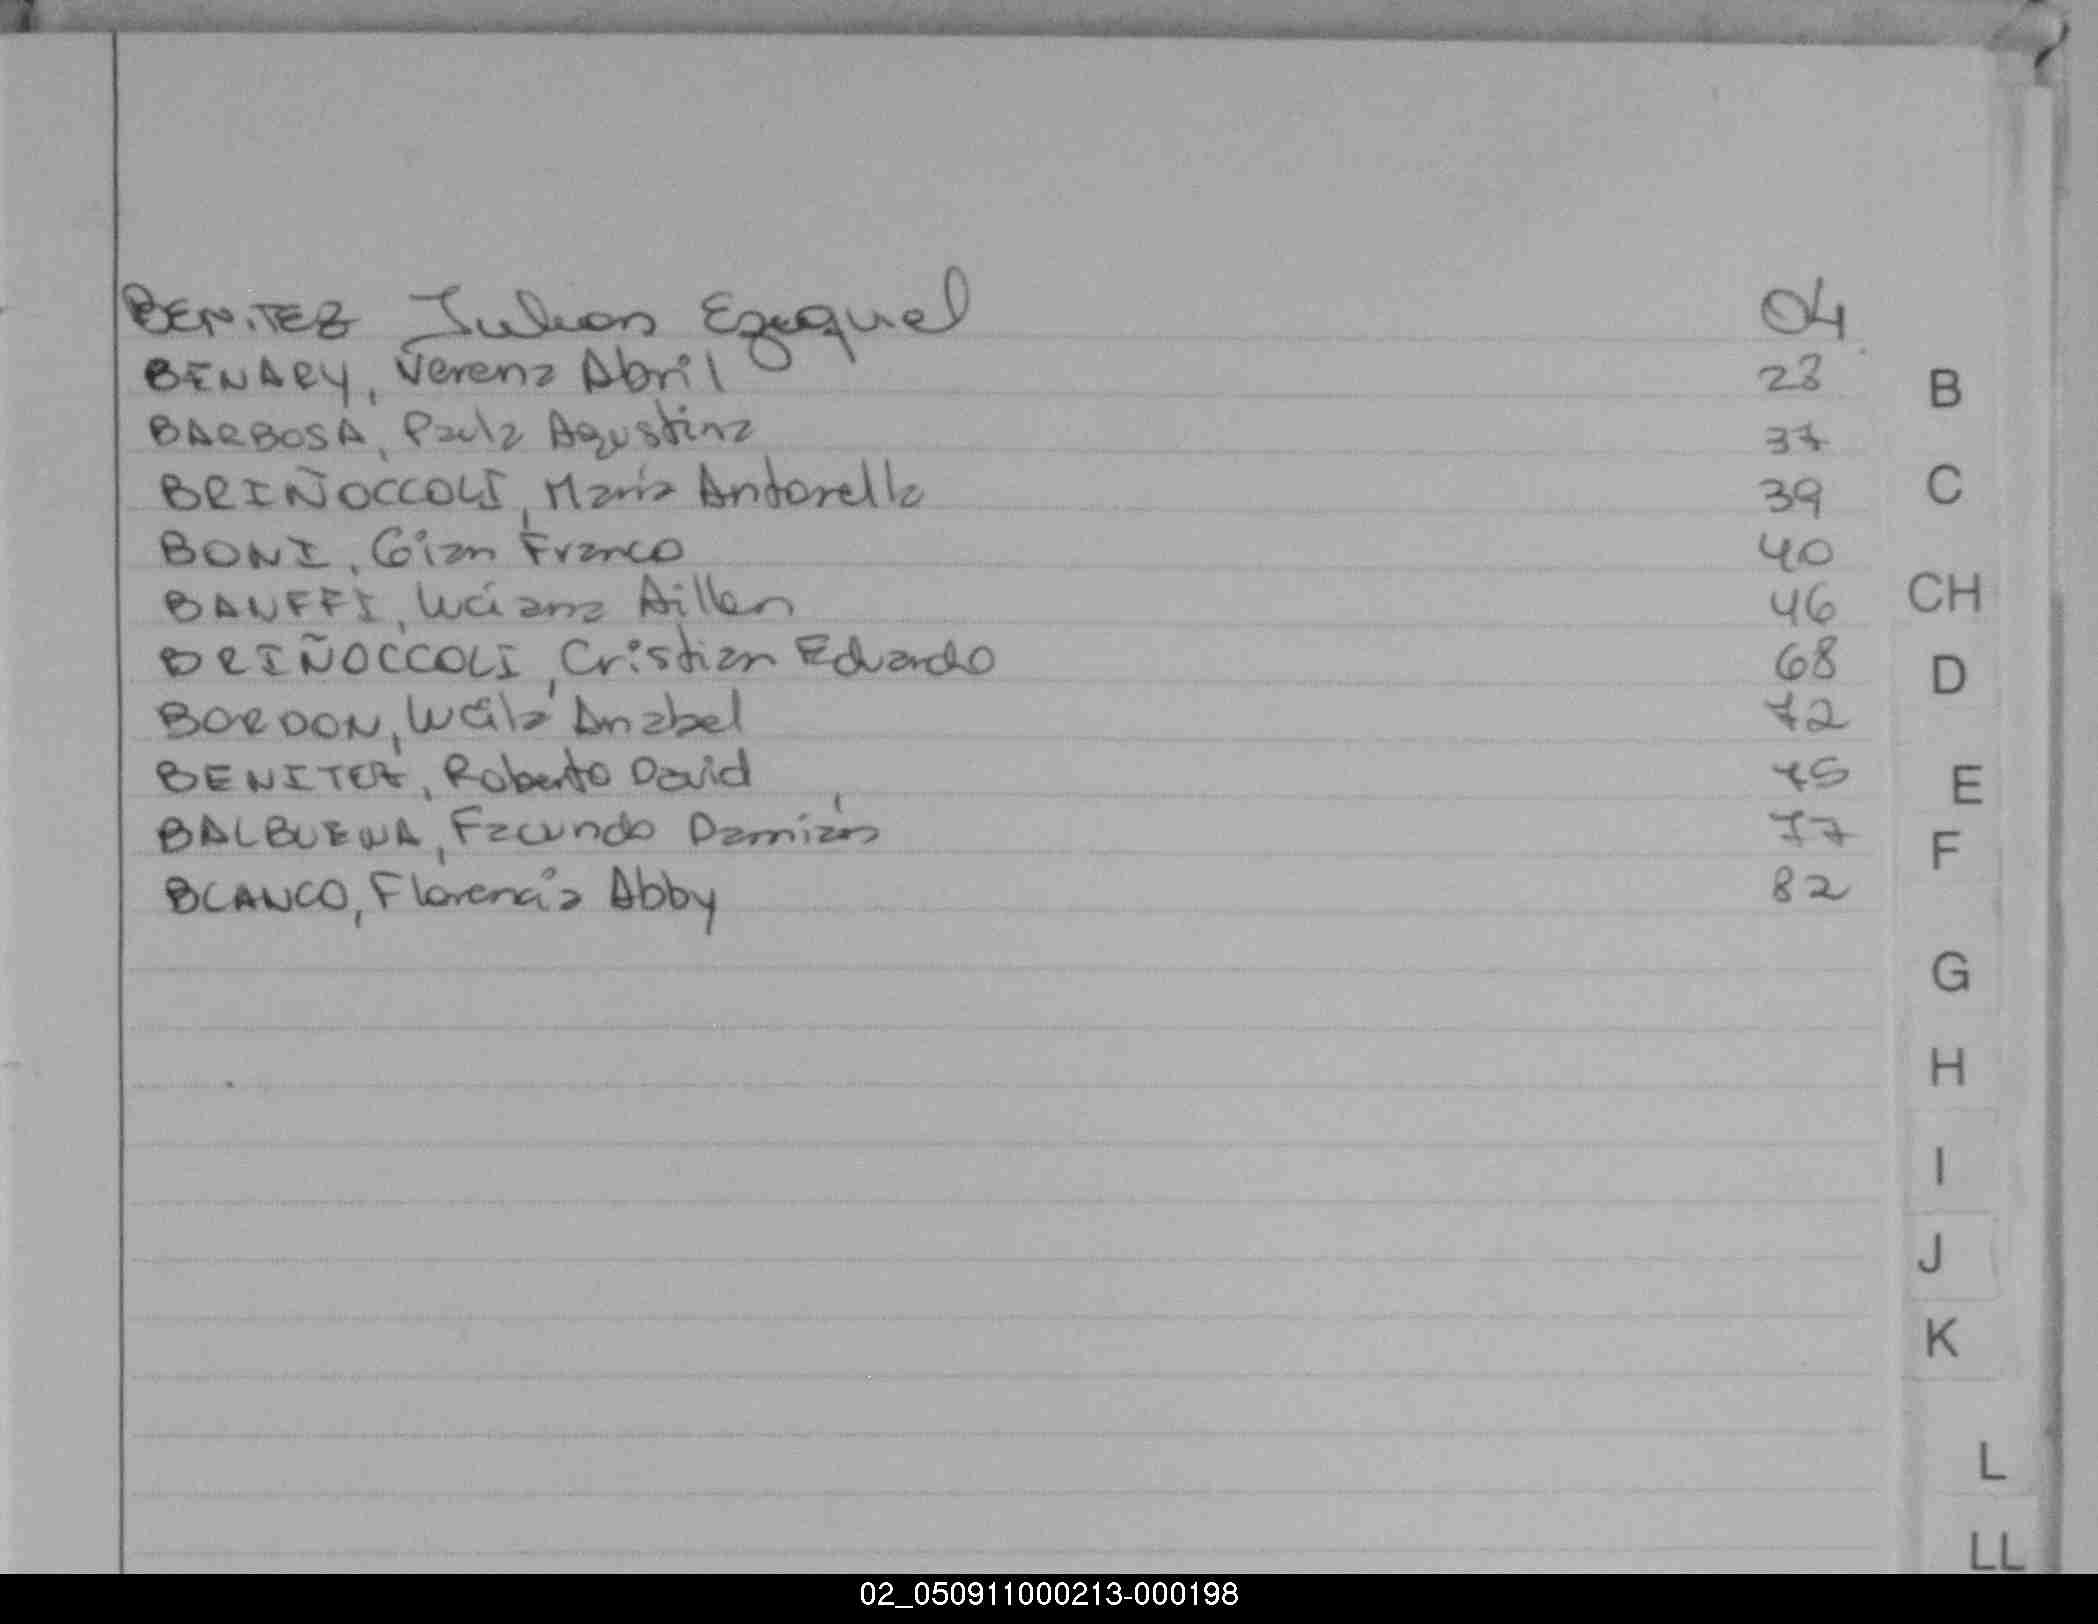 BENITEZ Julian Ezequiel 04
BENARY, Verena Abril 28
BARBOSA, Paula Agustina 37
BRIÑOCCOLI, María Antonella 39
BONI, Gian Franco 40
BANFFI, Luciana Aillen 46
BRIÑOCCOLI, Cristian Eduardo 68
BORDON, Lucila Anabel 72
BENITEZ, Roberto David 75
BALBUENA, Facundo Damián 77
BLANCO, Florencia Abby 82
B
C
CH
D
E
F
G
H
I
J
K
L
LL
02_050911000213-000198